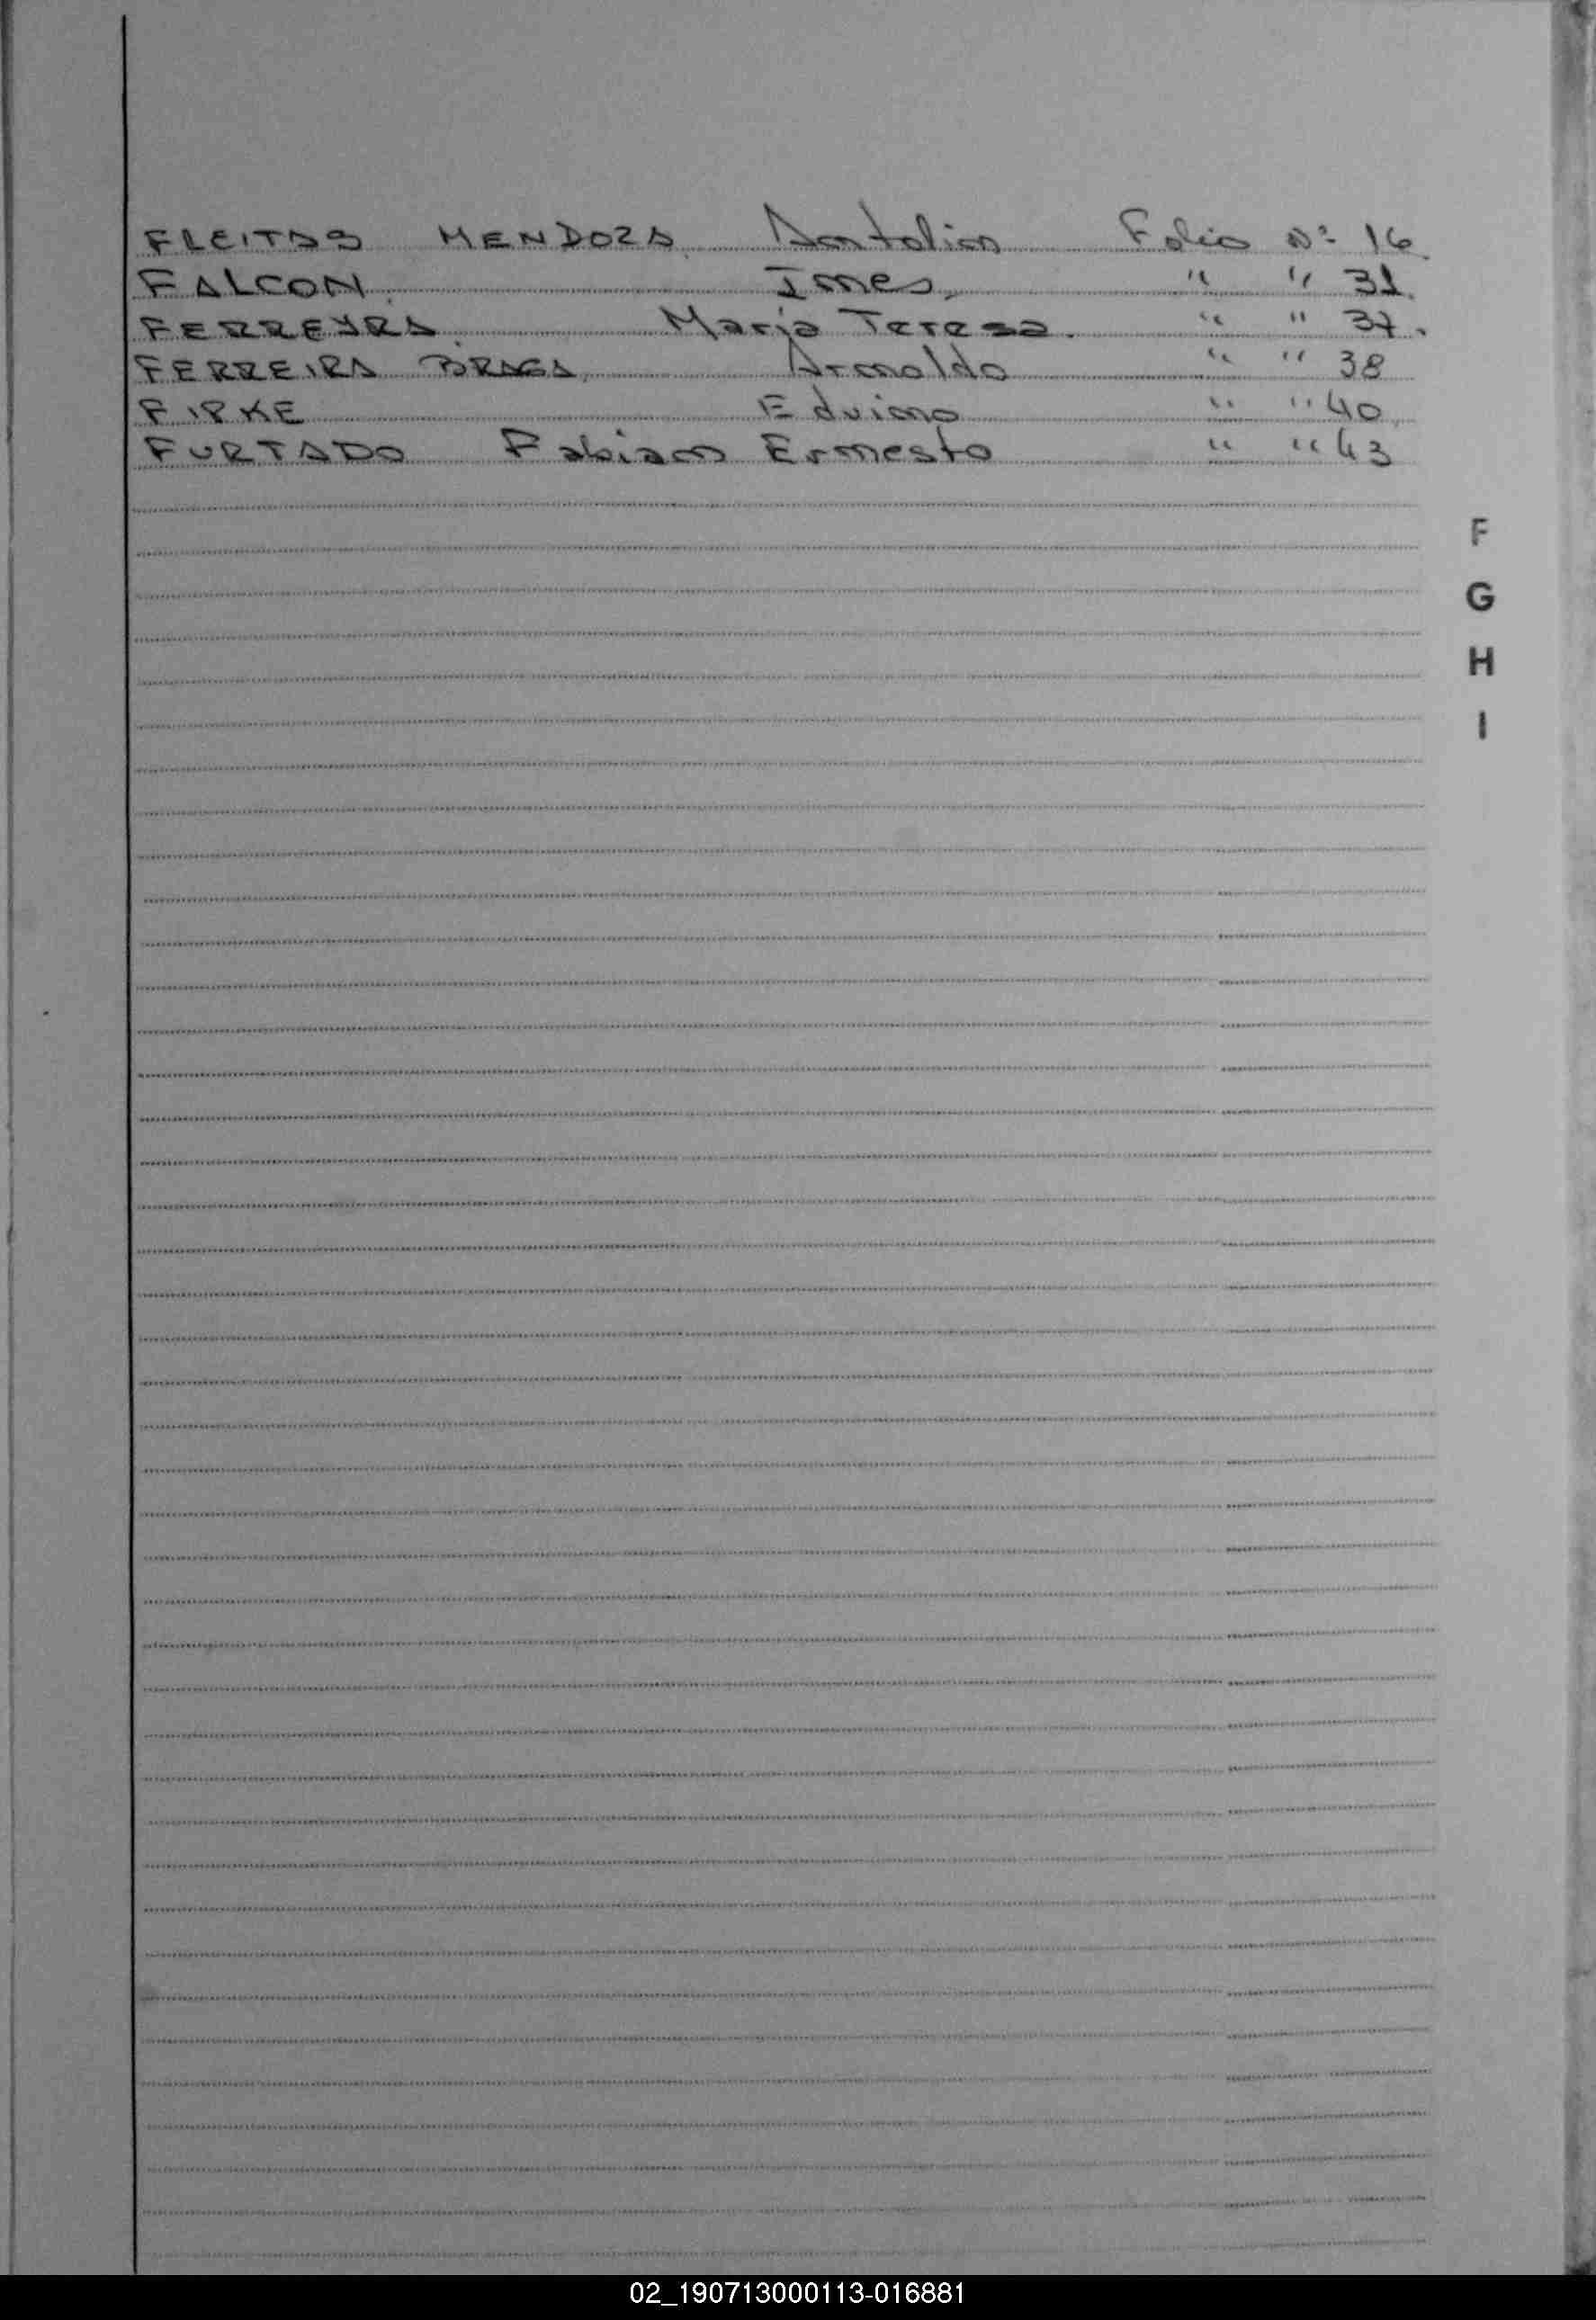 FLEITAS MENDOZA, Antolin Folio Nº 16.
FALCON, Ines, " " 31.
FERREYRA, Maria Teresa. " " 37.
FERREIRA BRAGA, Arnoldo " " 38
FIPKE Edvino " " 40
FURTADO Fabian Ernesto " " 43
F
G
H
I
02_190713000113-016881